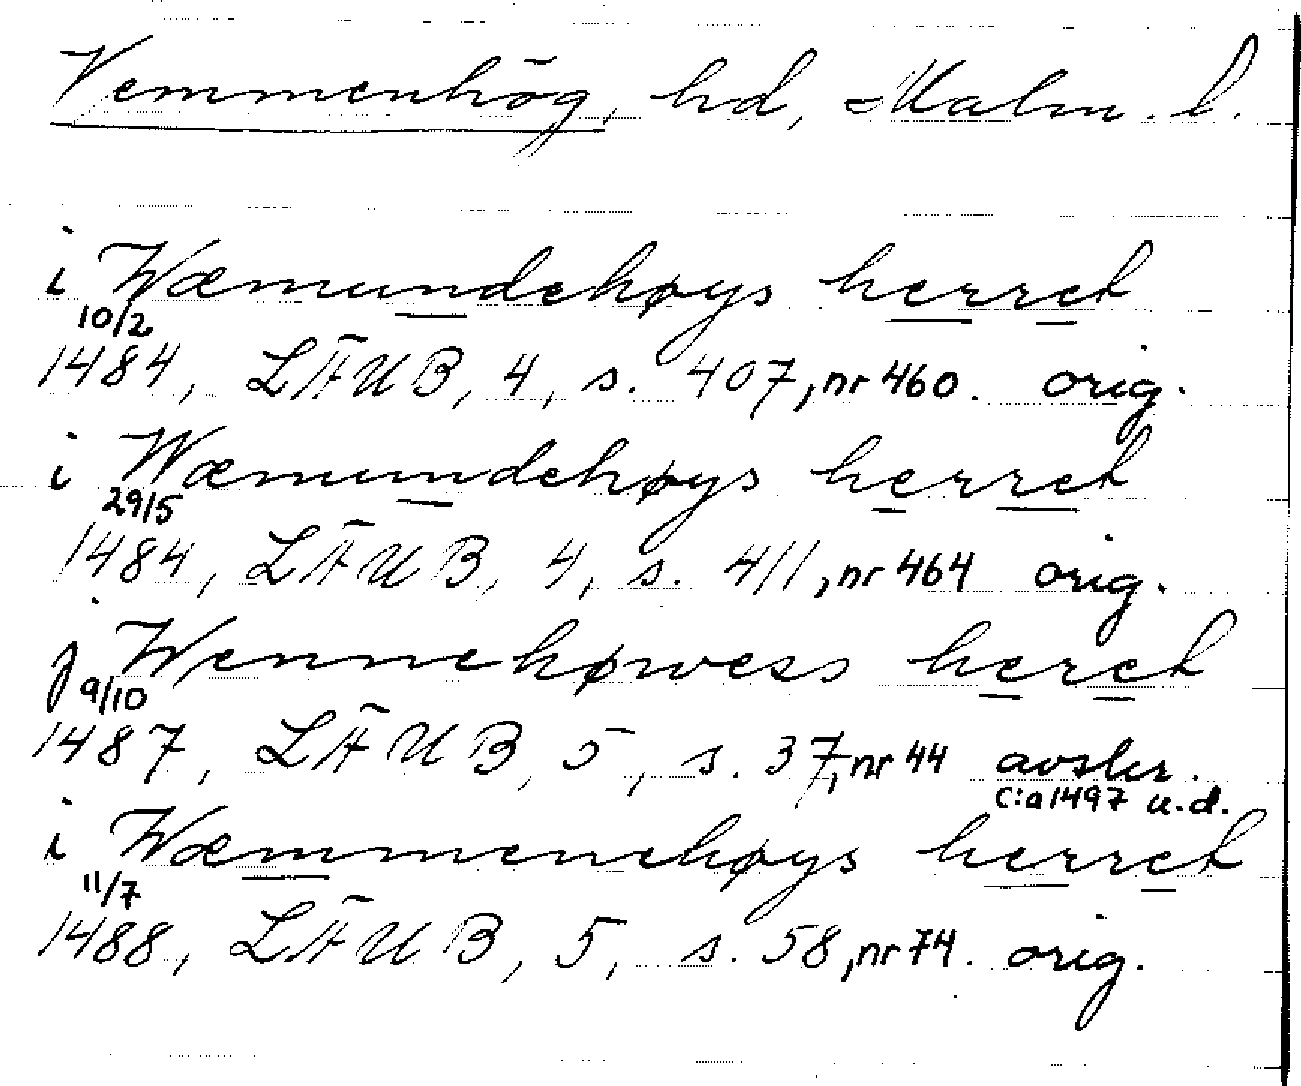 Vemmenhög, hd, Malm. l.
i Wæmundehøys herret
10/2
1484, LÄUB, 4, s. 407, nr 460. orig.
i Wæmundehøys herret
29/5
1484, LÄUB, 4, s. 411, nr 464 orig.
j Wennehøwess heret
9/10
1487, LÄUB, 5, s. 37, nr 44 avskr.
c:a 1497 u.d.
i Wæmmenehøys herret
11/7
1488, LÄUB, 5, s. 58, nr 74. orig.